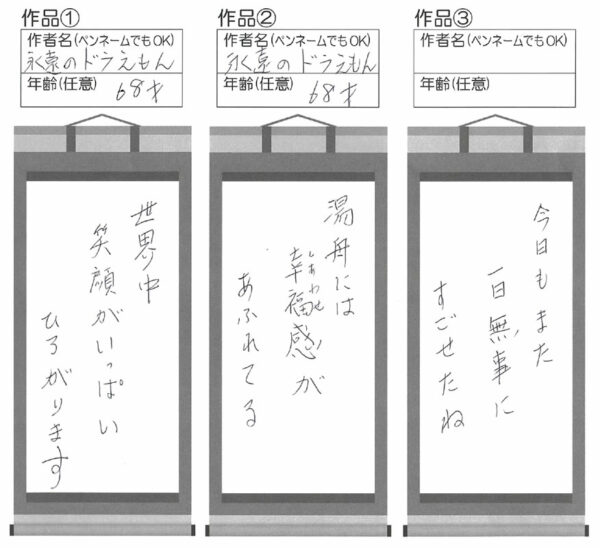 作品①
作者名(ペンネームでもOK)
永遠のドラえもん
年齢(任意) 68才
世界中
笑顔がいっぱい
ひろがります
作品②
作者名(ペンネームでもOK)
永遠のドラえもん
年齢(任意) 68才
湯舟には
幸福感が
しあわせ
あふれてる
作品③
作者名(ペンネームでもOK)
年齢(任意)
今日もまた
一日無事に
すごせたね